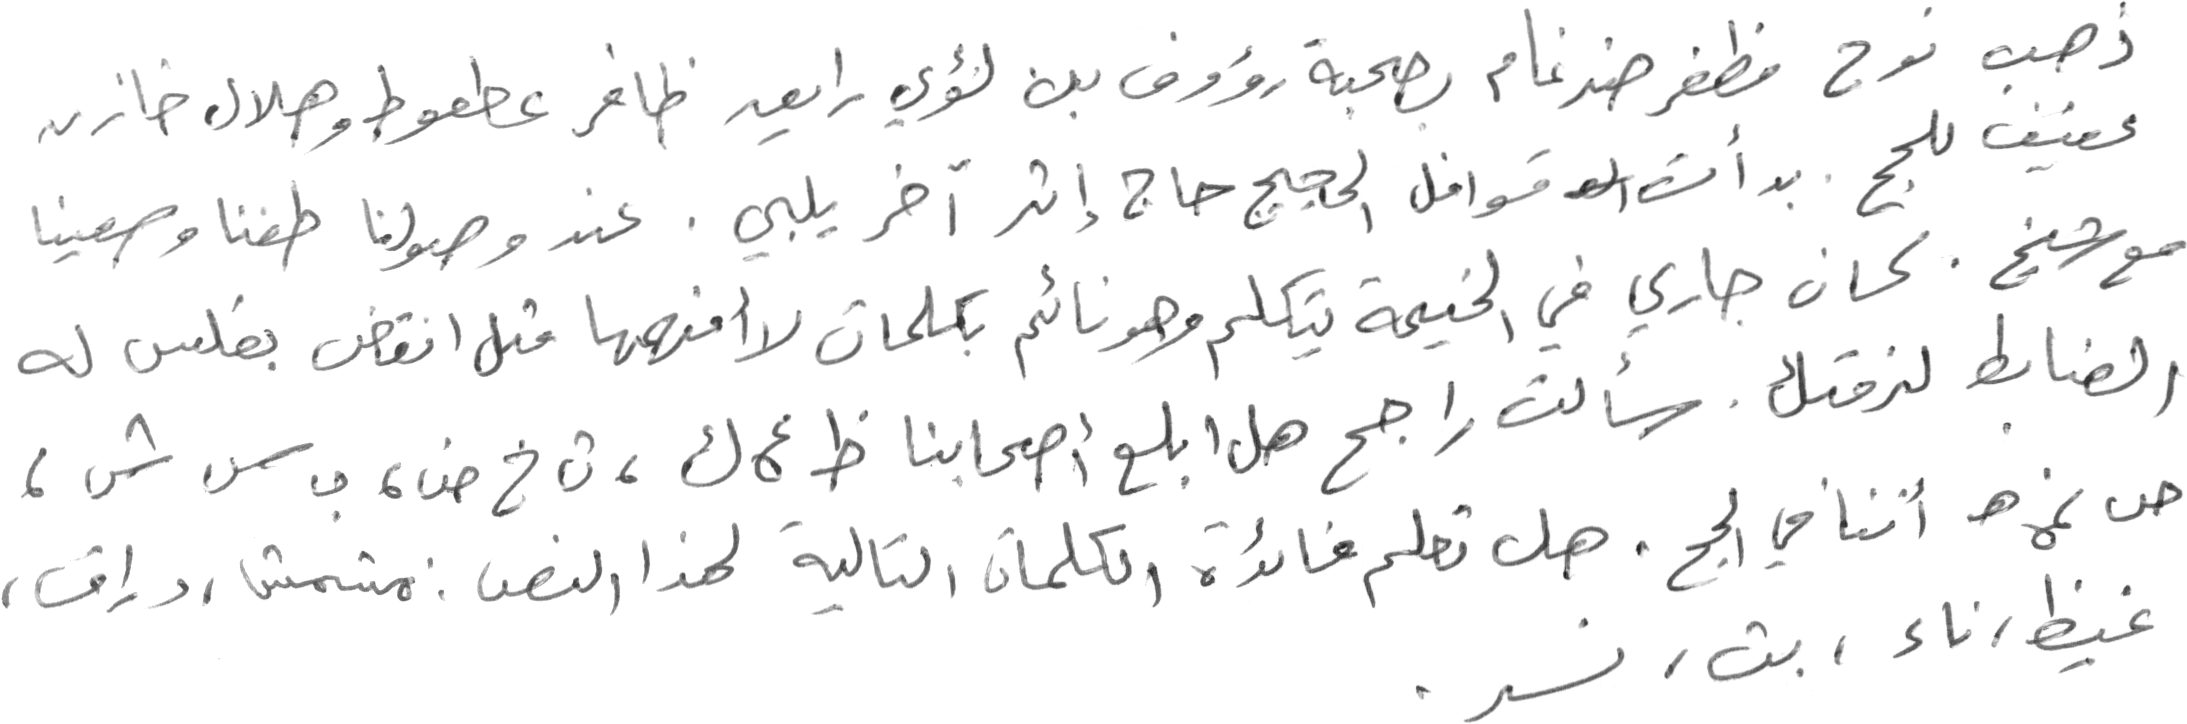 ذهب نوح مظفر ضرغام بصحبة رؤوف بن لؤي رايعد ظافر عطعوط وهلال خازن
عفيف للحج . بدأت قوافل الحجيج حاج إثر آخر يلبي . عند وصولنا طفنا وسعينا
مع شيخ . كان جاري في الخيمة يتكلم وهو نائم بكلمات لا أفهمها مثل انقض بفلس له
الضابط لنزقتك . سألت راجح هل ابلغ أصحابنا ظ ع ك ، ث خ ض ، ب س ش ،
ص غ ه أننا في الحج . هل تعلم فائدة الكلمات التالية لهذا النص : مشمش ، راق ،
غيظ ، ناء ، بث ، نسر .